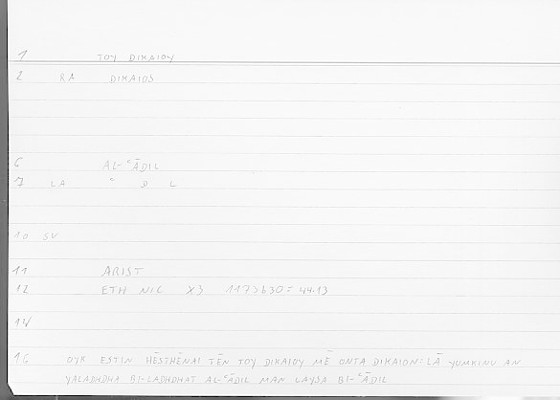 1 TOY DIKAIOY
2 &A DIKAIOS
6 AL-ʿĀDIL
7 LA " & L
10 SV
11 ARIST
12 ETH NIC X3 1173b30 = 44.13
14
16 OYK ESTIN HĒSTHĒNAI TĒN TOY DIKAIOY MĒ ONTA DIKAION: LĀ YUMKINU AN
YALADHDHA BI-LADHDHAT AL-ʿĀDIL MAN LAYSA BI-ʿĀDIL